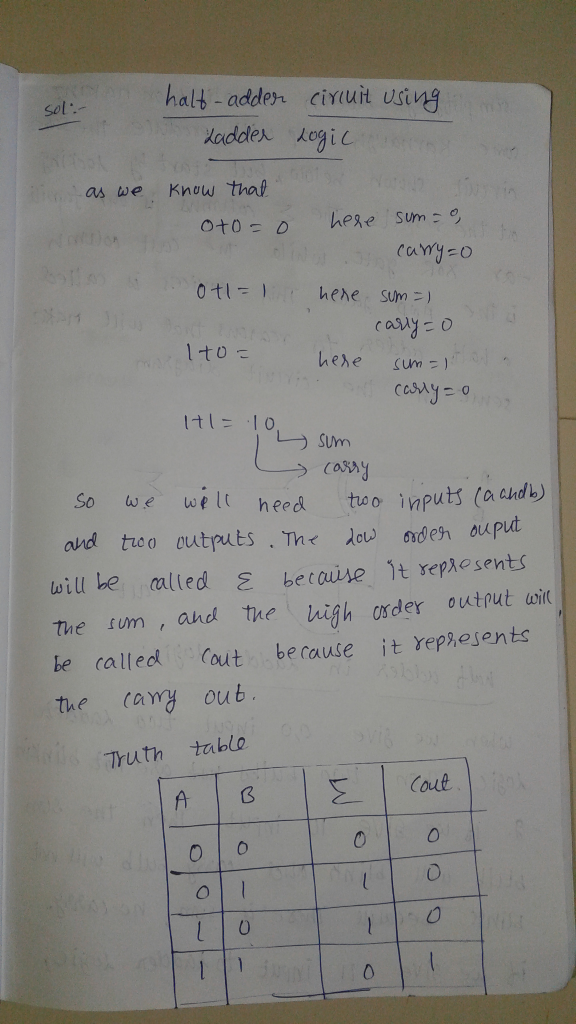 Sol:-
half-adder circuit using
Ladder Logic
as we know that
0+0 = 0 here sum = 0,
carry=0
0+1 = 1 here sum = 1
carry = 0
1+0 = here sum = 1
carry = 0
1+1 = 10
→ sum
→ carry
So we will need two inputs (a and b)
and two outputs. The low order ouput
will be called Σ because it represents
the sum, and the high order output will
be called Cout because it represents
the carry out.
Truth table
A B Σ Cout
0 0 0 0
0 1 1 0
1 0 1 0
1 1 0 1